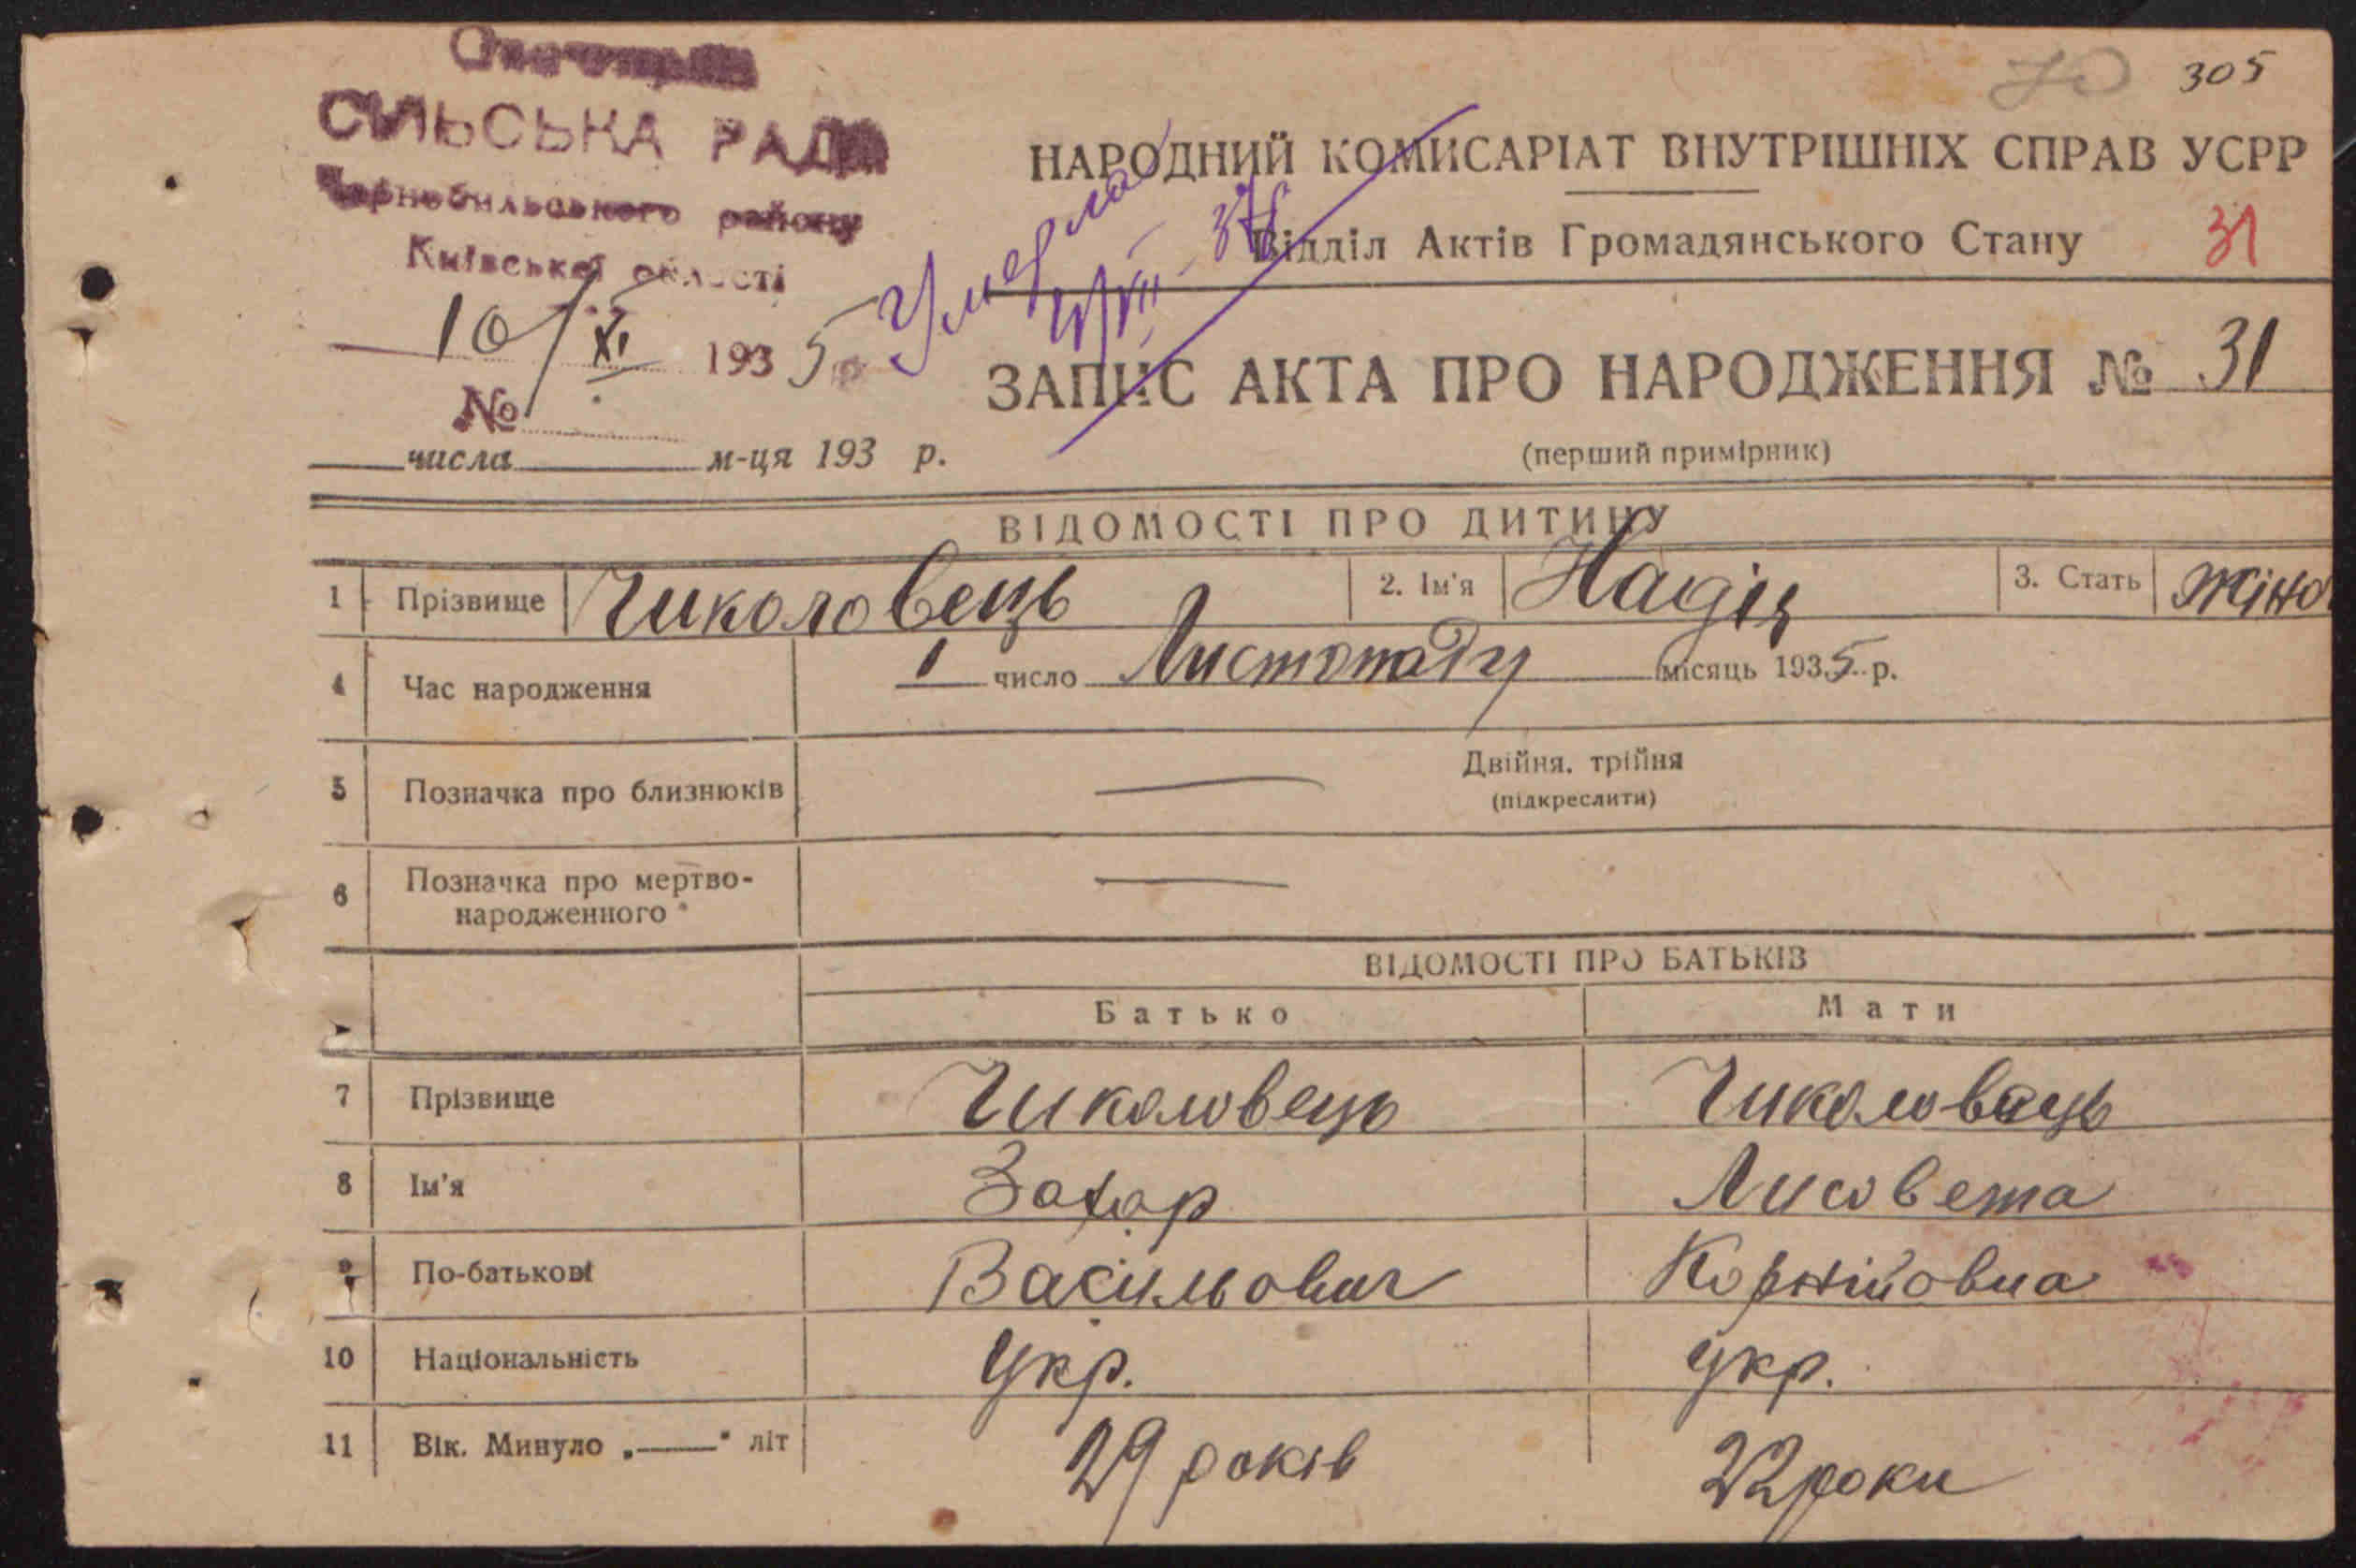 305
СІЛЬСЬКА РАДА
Чорнобильського району
Київської області
10/XI 1935 р.
№
числа м-ця 193 р.
Умерла
VIII 37
НАРОДНИЙ КОМИСАРІАТ ВНУТРІШНІХ СПРАВ УСРР
Відділ Актів Громадянського Стану 31
ЗАПИС АКТА ПРО НАРОДЖЕННЯ № 31
(перший примірник)
ВІДОМОСТІ ПРО ДИТИНУ
1 Прізвище Чиколовець 2. Ім'я Надія 3. Стать жіно
4 Час народження 1 число Листопаду місяць 1935 р.
5 Позначка про близнюків — Двійня, трійня
(підкреслити)
6 Позначка про мертво-
народженного —
ВІДОМОСТІ ПРО БАТЬКІВ
Батько Мати
7 Прізвище Чиколовець Чиколовець
8 Ім'я Захар Лисовета
9 По-батькові Васильович Корнійовна
10 Національність Укр. Укр.
11 Вік. Минуло „——" літ 29 років 22 роки